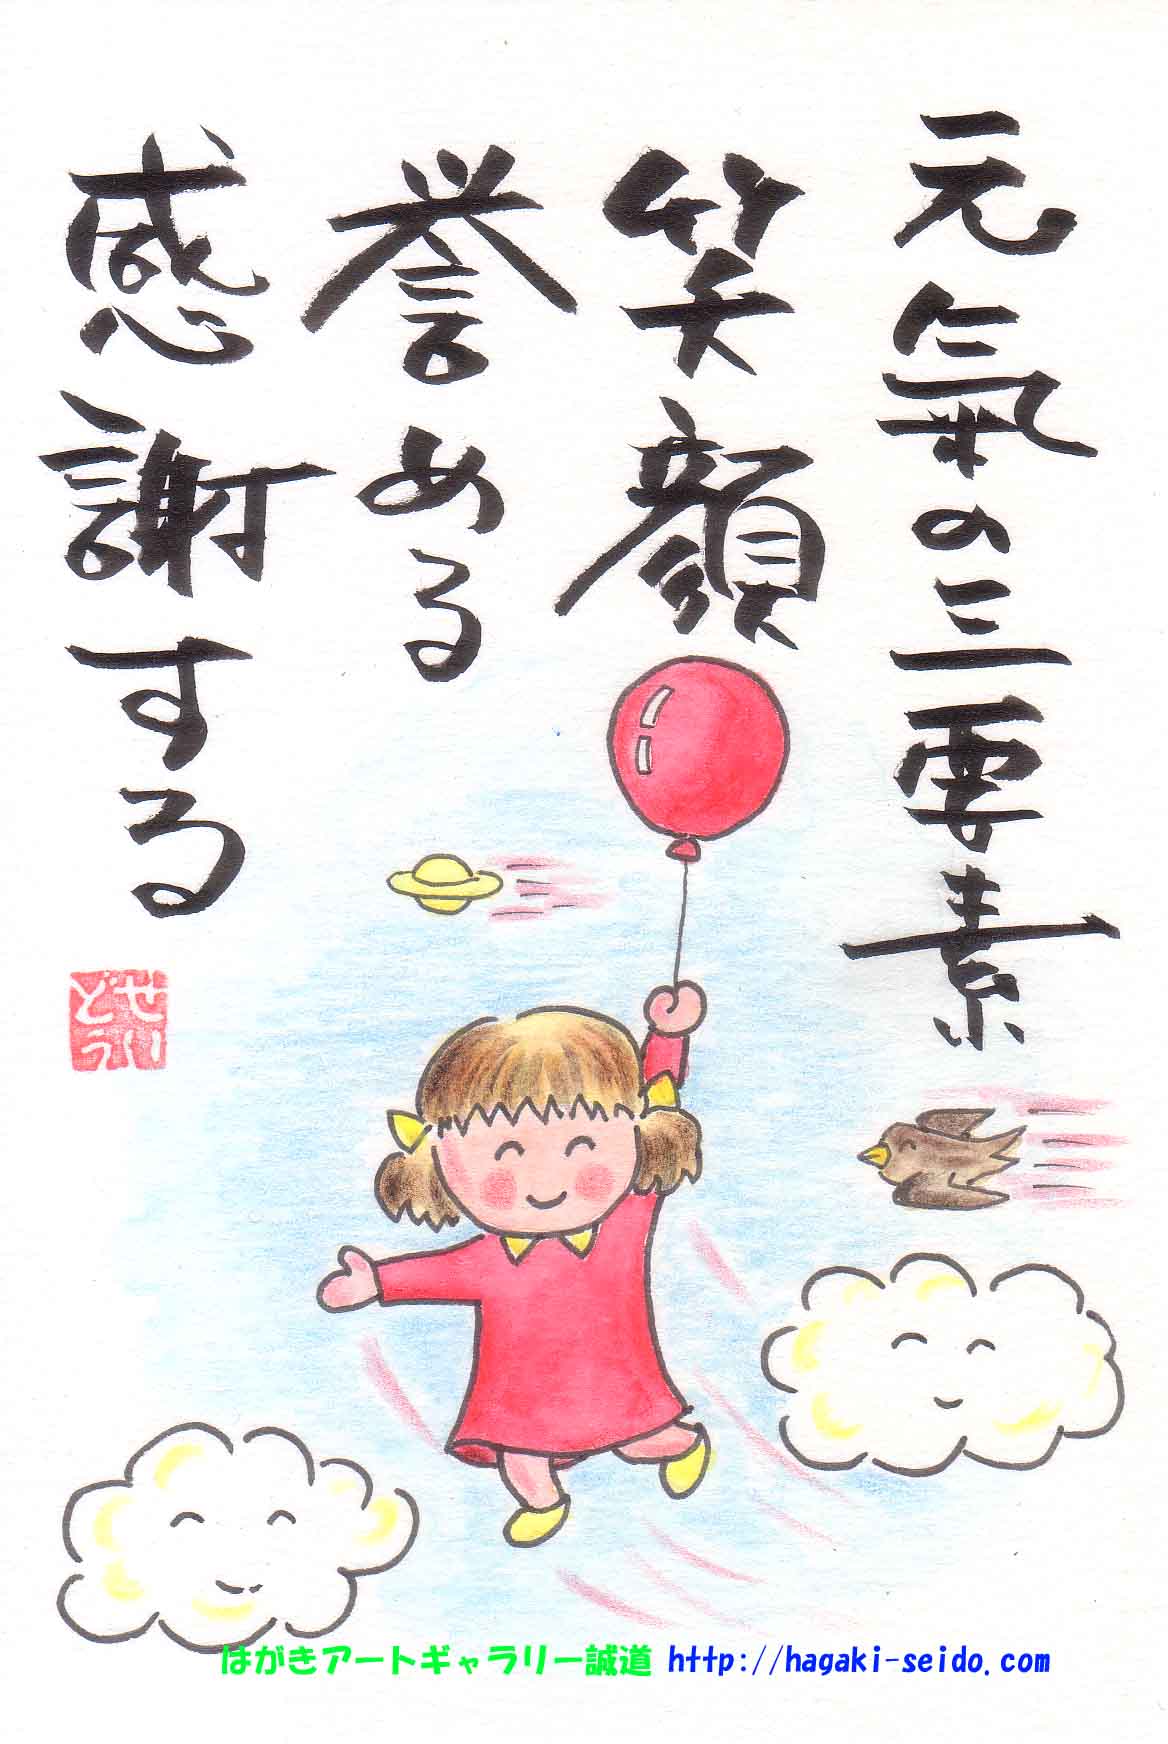 元氣の三要素
笑顔
誉める
感謝する
せいどう
はがきアートギャラリー誠道 http://hagaki-seido.com